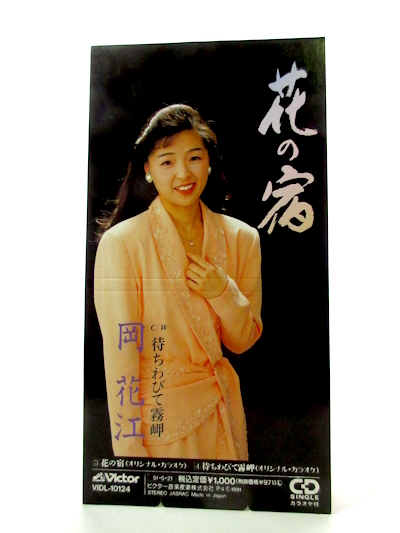 花の宿
岡 花江
C/W
待ちわびて霧岬
③花の宿(オリジナル・カラオケ) ④待ちわびて霧岬(オリジナル・カラオケ)
Victor
VIDL-10124
91・5・21 税込定価¥1,000(税抜価格¥971)
ビクター音楽産業株式会社 P&C 1991
STEREO JASRAC Made in Japan
CD
SINGLE
カラオケ付